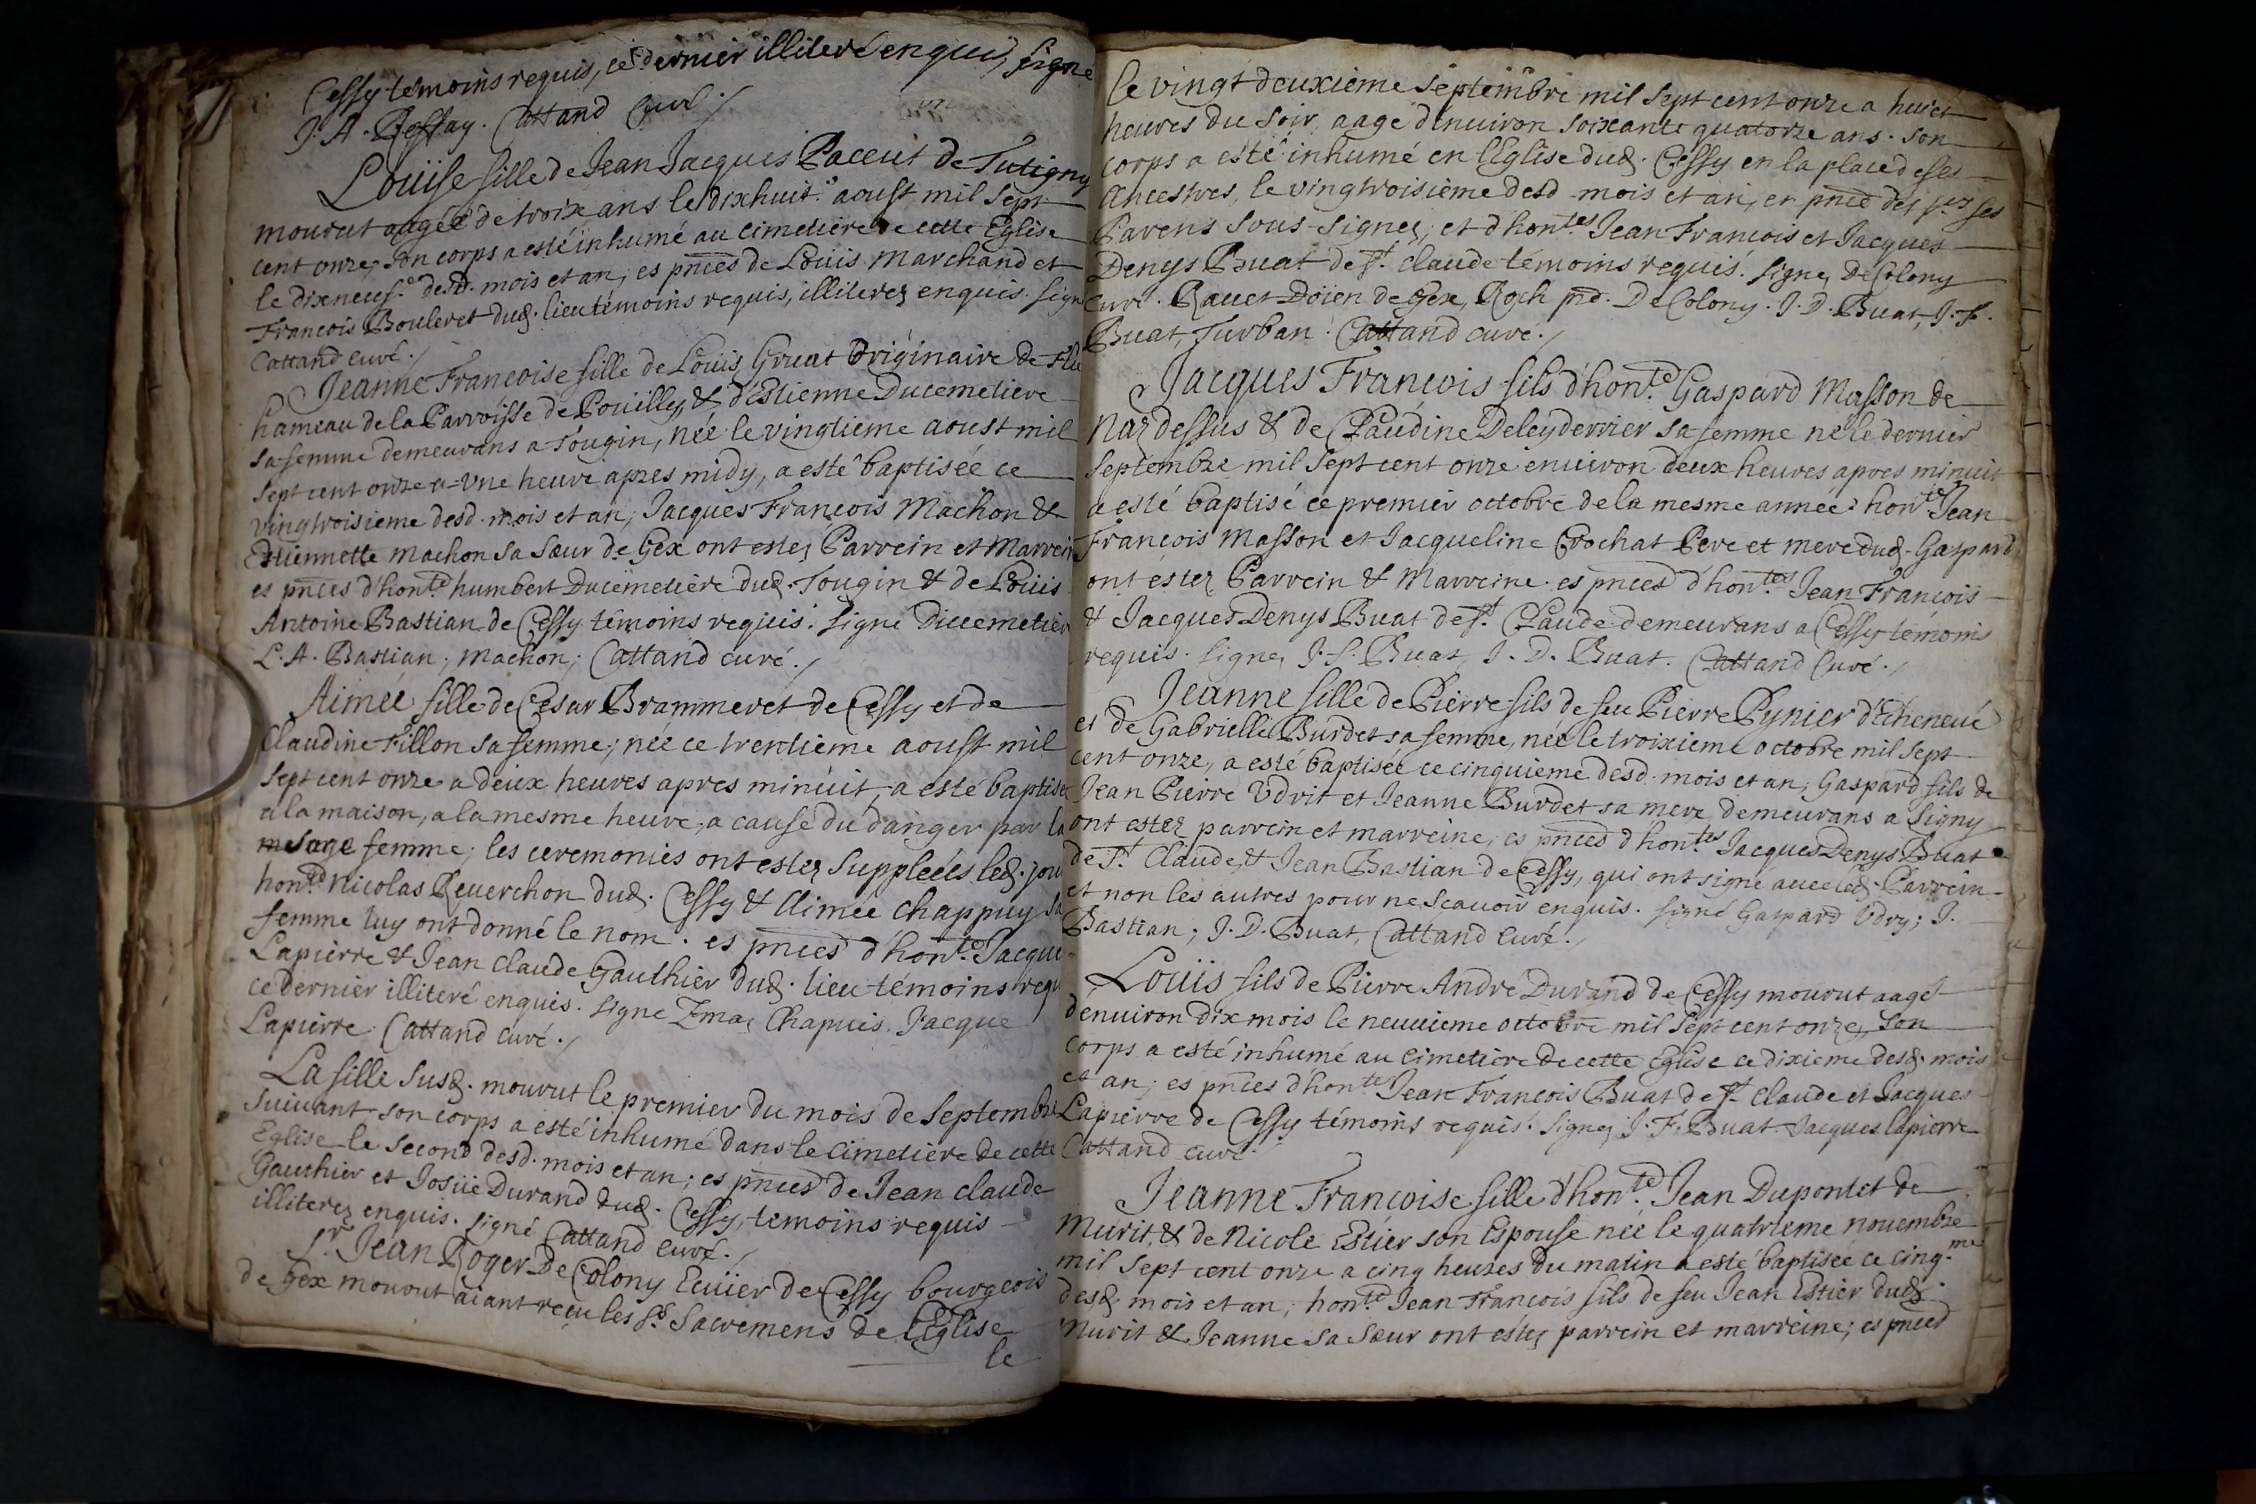 Cessy temoins requis, ce dernier illiteré enquis, signé
J. A. Cattand Curé ./
Louïse fille de Jean Jacques Paceut de Tutigny
mourut aagée de troix ans le dixhuit.e aoust mil sept
cent onze, son corps a esté inhumé au cimetiere de cette Eglise
le dixneuf.e desd. mois et an, es pnces de Loüis Marchand et
François Bouleret dud. lieu témoins requis, illiterez enquis. Signé
Cattand curé ./
Jeanne Françoise fille de Loüis Gruat Originaire de
hameau de la Parroisse de Pouilly, & d'Estienne Ducemetiere
sa femme demeurans a Tougin, née le vingtieme aoust mil
sept cent onze a une heure apres midy, a esté baptisée ce
vingtroisieme desd. mois et an, Jacques François Machon &
Estiennette Machon sa sœur de Gex ont estez Parrein et Marrein
es pnces d'hon.te humbert Ducemetiere dud. Tougin & de Loüis
Antoine Bastian de Cessy témoins requis. Signé Ducemetier
L. A. Bastian, Machon, Cattand curé ./
Aimée fille de Cesar Brammeret de Cessy et de
Claudine Fillon sa femme, née ce trentieme aoust mil
sept cent onze a deux heures apres minuit, a esté baptisé
a la maison, a la mesme heure, a cause du danger par la
sage femme; les ceremonies ont estez suppleées led. jou
hon.te Nicolas Reverchon dud. Cessy & Aimée Chappuy sa
femme luy ont donné le nom. es pnces d'hon.te Jacque
Lapierre & Jean Claude Gauthier dud. lieu témoins requ
ce dernier illiteré enquis. Signe Emaz Chapuis Jacque
Lapierre Cattand curé ./
La fille susd. mourut le premier du mois de Septembre
suivant son corps a esté inhumé dans le cimetiere de cette
Eglise le second desd. mois et an; es pnces de Jean Claude
Gauthier et Josüe Durand dud. Cessy, temoins requis
illiterez enquis. Signé Cattand curé ./
S.r Jean Roger De Colony Ecuïer de Cessy bourgeois
de Gex mourut aiant reçu les S.ts Sacremens de l'Eglise
le
le vingt deuxieme Septembre mil sept cent onze a huict
heures du soir, aagé d'enuiron soixante quatorze ans. son
corps a esté inhumé en l'Eglise dud. Cessy en la place de ses
Ancestres, le vingtroisieme desd. mois et an, en pnce des s.rs ses
Parens sous-signez, et d'hon.tes Jean François et Jacques
Denys Buat de S.t Claude témoins requis. signez De Colony
Curé. Rauet Doïen de Gex, Roch pd. De Colony. J. D. Buat, J. f.
Buat, Turban. Cattand curé ./
Jacques François fils d'hon.te Gaspard Masson de
Naz dessus & de Claudine Deleyderrier sa femme né le dernier
Septembre mil sept cent onze enuiron deux heures apres minuit
a esté baptisé ce premier octobre de la mesme année; hon.te Jean
François Masson et Jacqueline Crochat Pere et mere dud. Gaspard
ont estez Parrein & Marreine. es pnces d'hon.tes Jean François
& Jacques Denys Buat de S.t Claude demeurans a Cessy temoins
requis. signez J. f. Buat, J. D. Buat. Cattand Curé ./
Jeanne fille de Pierre fils de feu Pierre Pynier d'Echeneué
et de Gabrielle Burdet sa femme, née le troixieme octobre mil sept
cent onze, a esté baptisée ce cinquieme desd. mois et an, Gaspard fils de
Jean Pierre Vdrit et Jeanne Burdet sa mere demeurans a Signy
ont estez parrein et marreine, es pnces d'hon.tes Jacques Denys Buat
de S.t Claude, & Jean Bastian de Cessy, qui ont signé auec led. Parrein
et non les autres pour ne scauoir enquis. signé Gaspard Vdry; J.
Bastian; J. D. Buat, Cattand Curé ./
Loüis fils de Pierre André Durand de Cessy mourut aagé
d'enuiron dix mois le neuuieme octobre mil sept cent onze, son
corps a esté inhumé au cimetiere de cette Eglise ce dixieme desd. mois
et an; es pnces d'hon.tes Jean François Buat de S.t Claude et Jacques
Lapierre de Cessy témoins requis. signez J. F. Buat Jacques lapierre
Cattand curé.
Jeanne Françoise fille d'hon.te Jean Dupontet de
Murit, & de Nicole Estier son Espouse née le quatrieme nouembre
mil sept cent onze a cinq heures du matin a esté baptisée ce cinq.me
desd. mois et an, hon.te Jean François fils de feu Jean Estier dud.
Murit & Jeanne sa sœur ont estez parrein et marreine; es pnces